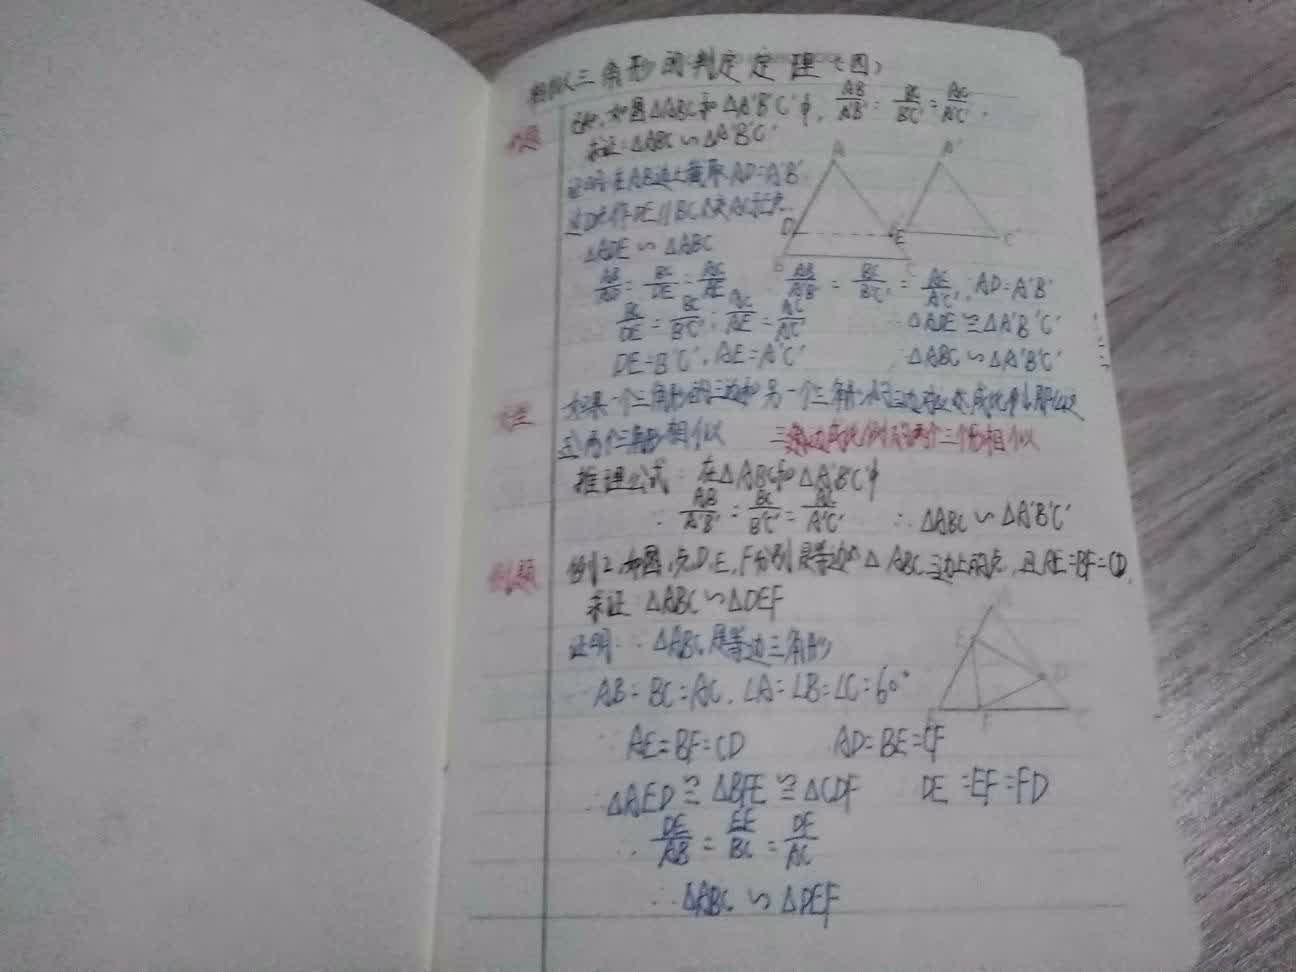 相似三角形的判定定理(四)
已知:如图△ABC和△A'B'C'中, AB/A'B' = BC/B'C' = AC/A'C'.
求证:△ABC∽△A'B'C'
A A'
证明:在AB边上截取AD=A'B'
过D点作DE∥BC交AC于E点.
D E C'
△ADE∽△ABC
B C
AB/AD = BC/DE = AC/AE AB/A'B' = BC/B'C' = AC/A'C', AD=A'B'
BC/DE = BC/B'C', AC/AE = AC/A'C' △ADE≌△A'B'C'
DE=B'C', AE=A'C' △ABC∽△A'B'C'
如果一个三角形的三边和另一个三角形的三边对应成比例,那么
这两个三角形相似 三边成比例的两个三角形相似
推理公式:在△ABC和△A'B'C'中
∵ AB/A'B' = BC/B'C' = AC/A'C' ∴△ABC∽△A'B'C'
例题 例2,如图,点D,E,F分别是等边△ABC三边上的点,且AE=BF=CD,
求证:△ABC∽△DEF
证明:∵△ABC是等边三角形
E D F
AB=BC=AC,∠A=∠B=∠C=60°
∵AE=BF=CD AD=BE=CF
∴△AED≌△BFE≌△CDF DE=EF=FD
∴ DE/AB = EF/BC = DF/AC
∴△ABC∽△DEF